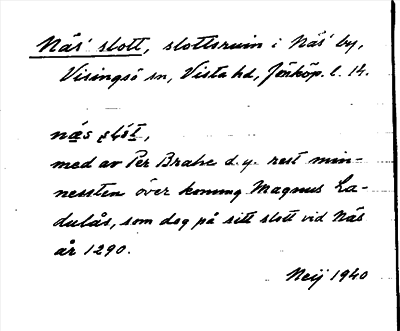 Näs' slott, slottsruin i Näs' by,
Visingsö sn, Vista hd, Jönköp. l. 14.
med av Per Brahe d.y. rest min-
nessten över konung Magnus La-
dulås, som dog på sitt slott vid Näs
år 1290.
Neij 1940